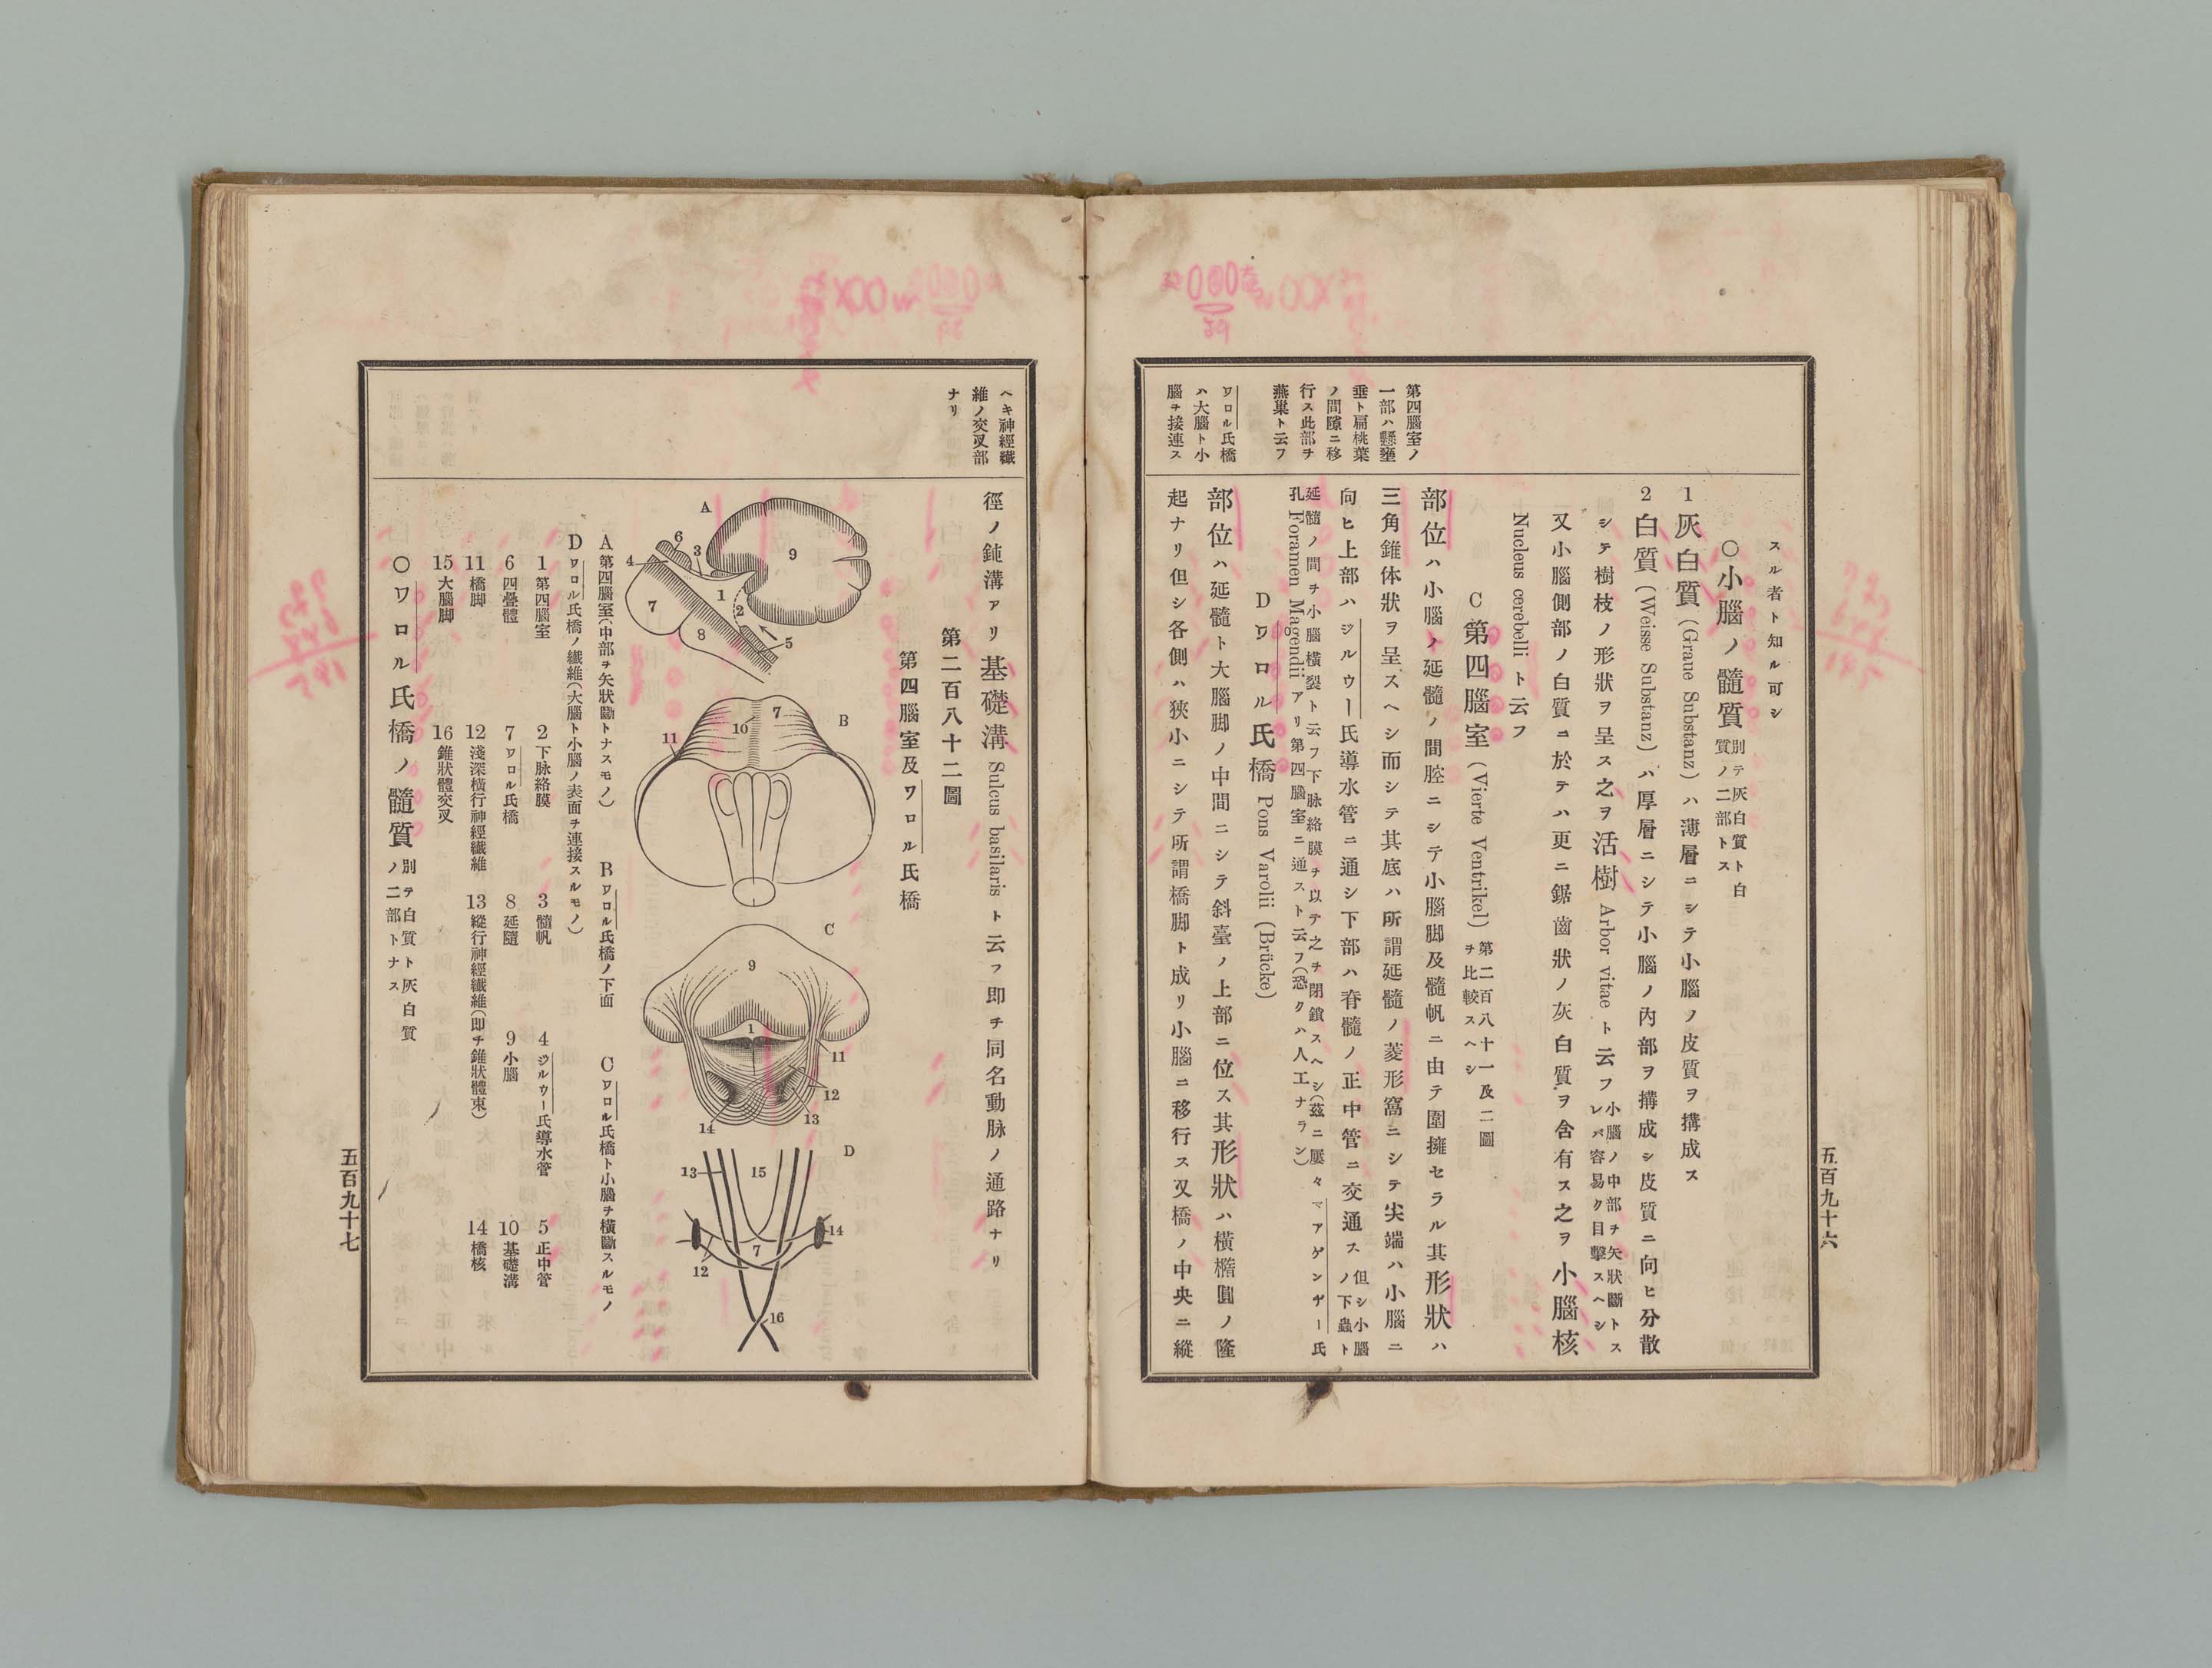 スル者ト知ル可シ
〇小腦ノ髓質 別テ灰白質ト白
質ノ二部トス
1 灰白質 (Graue Substanz) ハ薄層ニシテ小腦ノ皮質ヲ搆成ス
2 白質 (Weisse Substanz) ハ厚層ニシテ小腦ノ內部ヲ搆成シ皮質ニ向ヒ分散
シテ樹枝ノ形狀ヲ呈ス之ヲ活樹 Arbor vitae ト云フ 小腦ノ中部ヲ矢狀斷トス
レバ容易ク目擊スヘシ
又小腦側部ノ白質ニ於テハ更ニ鋸齒狀ノ灰白質ヲ含有ス之ヲ小腦核
Nucleus cerebelli ト云フ
C 第四腦室 (Vierte Ventrikel) 第二百八十一及二圖
ヲ比較スヘシ
部位ハ小腦ノ延髓ノ間腔ニシテ小腦脚及髓帆ニ由テ圍擁セラル其形狀ハ
三角錐体狀ヲ呈スヘシ而シテ其底ハ所謂延髓ノ菱形窩ニシテ尖端ハ小腦ニ
向ヒ上部ハジルウー氏導水管ニ通シ下部ハ脊髓ノ正中管ニ交通ス 但シ小腦
ノ下蟲ト
延髓ノ間ヲ小腦橫裂ト云フ下脉絡膜ヲ以テ之ヲ閉鎖スヘシ(茲ニ屢々マアゲンヂー氏
孔 Foramen Magendii アリ第四腦室ニ通スト云フ(恐クハ人工ナラン)
D ワロル氏橋 Pons Varolii (Brücke)
部位ハ延髓ト大腦脚ノ中間ニシテ斜臺ノ上部ニ位ス其形狀ハ橫橢圓ノ隆
起ナリ但シ各側ハ狹小ニシテ所謂橋脚ト成リ小腦ニ移行ス又橋ノ中央ニ縱
第四腦室ノ
一部ハ懸壅
垂ト扁桃葉
ノ間隙ニ移
行ス此部ヲ
燕巢ト云フ
ワロル氏橋
ハ大腦ト小
腦ヲ接連ス
五百九十六
ヘキ神經纖
維ノ交叉部
ナリ
徑ノ鈍溝アリ基礎溝 Sulcus basilaris ト云フ卽チ同名動脉ノ通路ナリ
第二百八十二圖
第四腦室及ワロル氏橋
A
9
6
3
4
1
2
7
8
5
B
7
10
11
C
9
1
11
12
13
14
D
13
15
14
7
12
16
A 第四腦室(中部ヲ矢狀斷トナスモノ) B ワロル氏橋ノ下面 C ワロル氏橋ト小腦ヲ橫斷スルモノ
D ワロル氏橋ノ纖維(大腦ト小腦ノ表面ヲ連接スルモノ)
1 第四腦室 2 下脉絡膜 3 髓帆 4 ジルウー氏導水管 5 正中管
6 四疊體 7 ワロル氏橋 8 延隨 9 小腦 10 基礎溝
11 橋脚 12 淺深橫行神經纖維 13 縱行神經纖維(卽チ錐狀體束) 14 橋核
15 大腦脚 16 錐狀體交叉
〇ワロル氏橋ノ髓質 別テ白質ト灰白質
ノ二部トナス
五百九十七